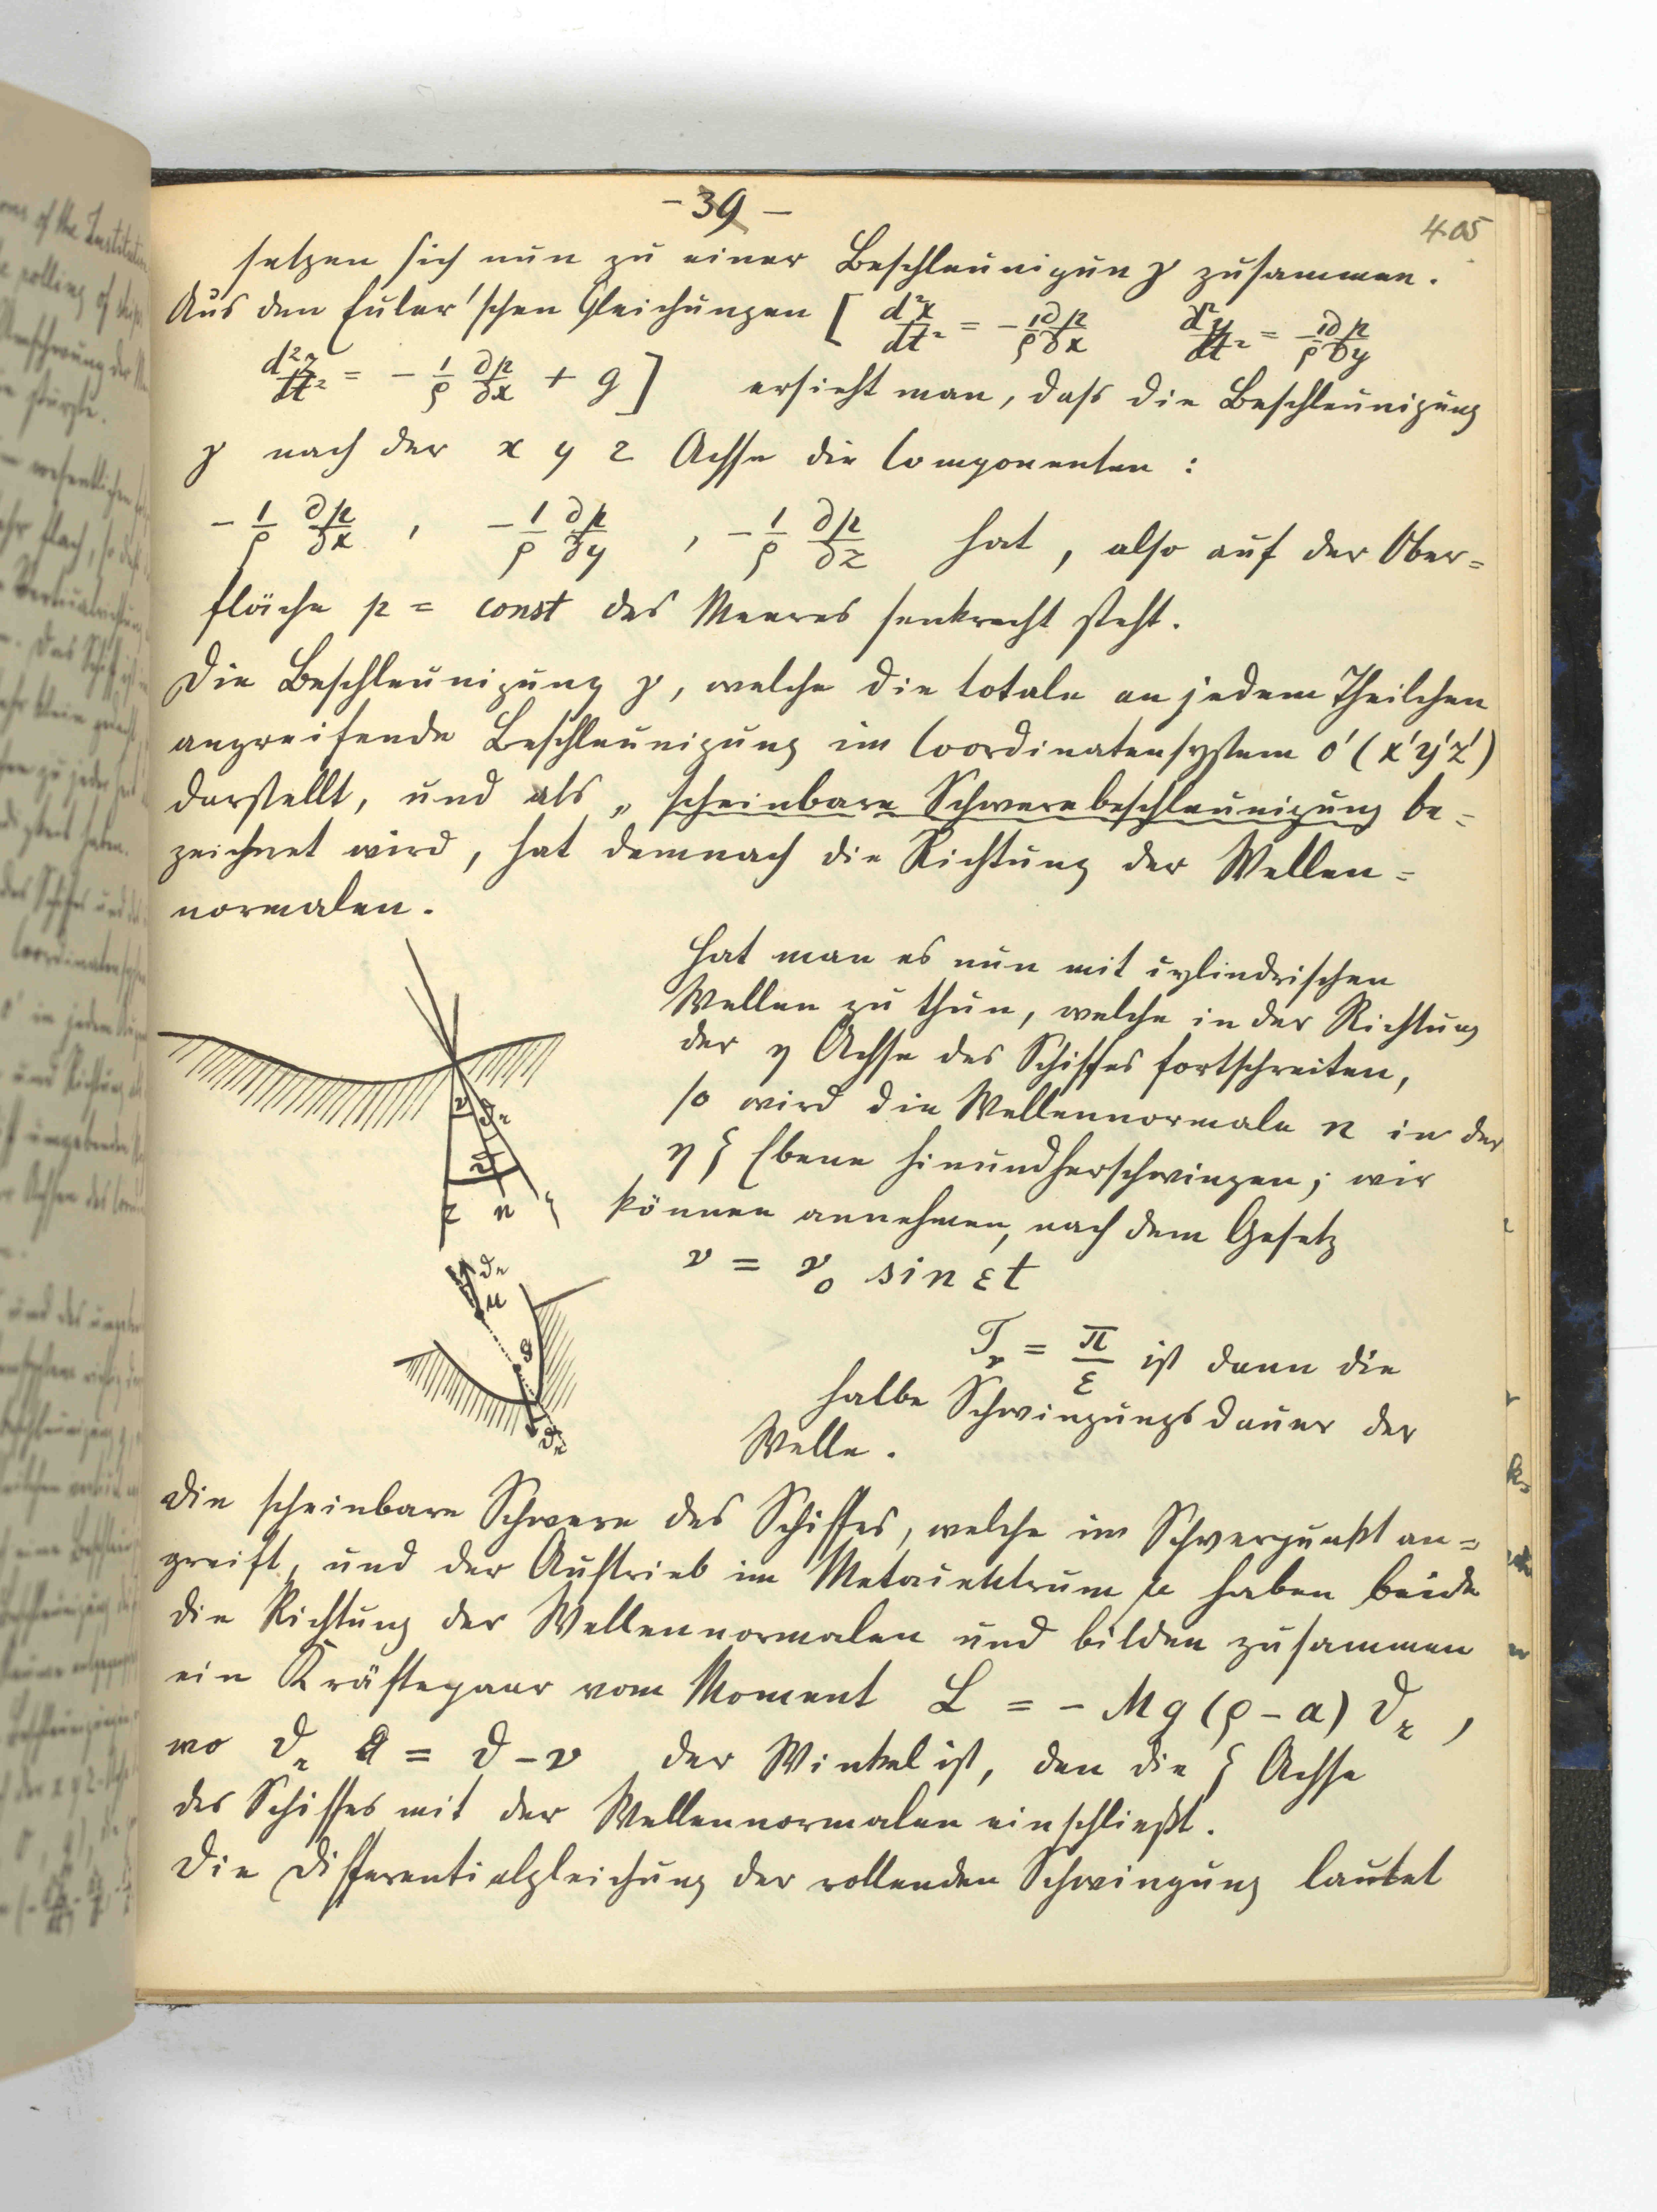 - 39 -
405
setzen sich nun zu einer Beschleunigung γ zusammen.
Aus den Euler'schen Gleichungen [ d²x/dt² = - 1/ρ ∂p/∂x   d²y/dt² = - 1/ρ ∂p/∂y
d²z/dt² = - 1/ρ ∂p/∂x + g ]   ersieht man, dass die Beschleunigung
γ nach der x y z Achse die Componenten :
- 1/ρ ∂p/∂x , - 1/ρ ∂p/∂y , - 1/ρ ∂p/∂z hat, also auf der Ober=
fläche p = const des Meeres senkrecht steht.
Die Beschleunigung γ, welche die totale an jedem Theilchen
angreifende Beschleunigung im Coordinatensystem O' (x' y' z')
darstellt, und als „ scheinbare Schwerebeschleunigung be=
zeichnet wird, hat demnach die Richtung der Wellen=
normalen.
Hat man es nun mit cylindrischen
Wellen zu thun, welche in der Richtung
der η Achse des Schiffes fortschreiten,
so wird die Wellennormale n in der
η ζ Ebene hinundherschwingen; wir
können annehmen, nach dem Gesetz
ν = ν₀ sin εt
T_ν = π/ε ist dann die
halbe Schwingungsdauer der
Welle.
ν ϑr
ϑ
z n ζ
ϑr
μ
g
ϑr
Die scheinbare Schwere des Schiffes, welche im Schwerpunkt an=
greift, und der Auftrieb im Metacentrum μ haben beide
die Richtung der Wellennormalen und bilden zusammen
ein Kräftepaar vom Moment L = - Mg (ρ - a) ϑr ,
wo ϑr = ϑ - ν der Winkel ist, den die ζ Achse
des Schiffes mit der Wellennormalen einschließt.
Die Differentialgleichung der rollenden Schwingung lautet